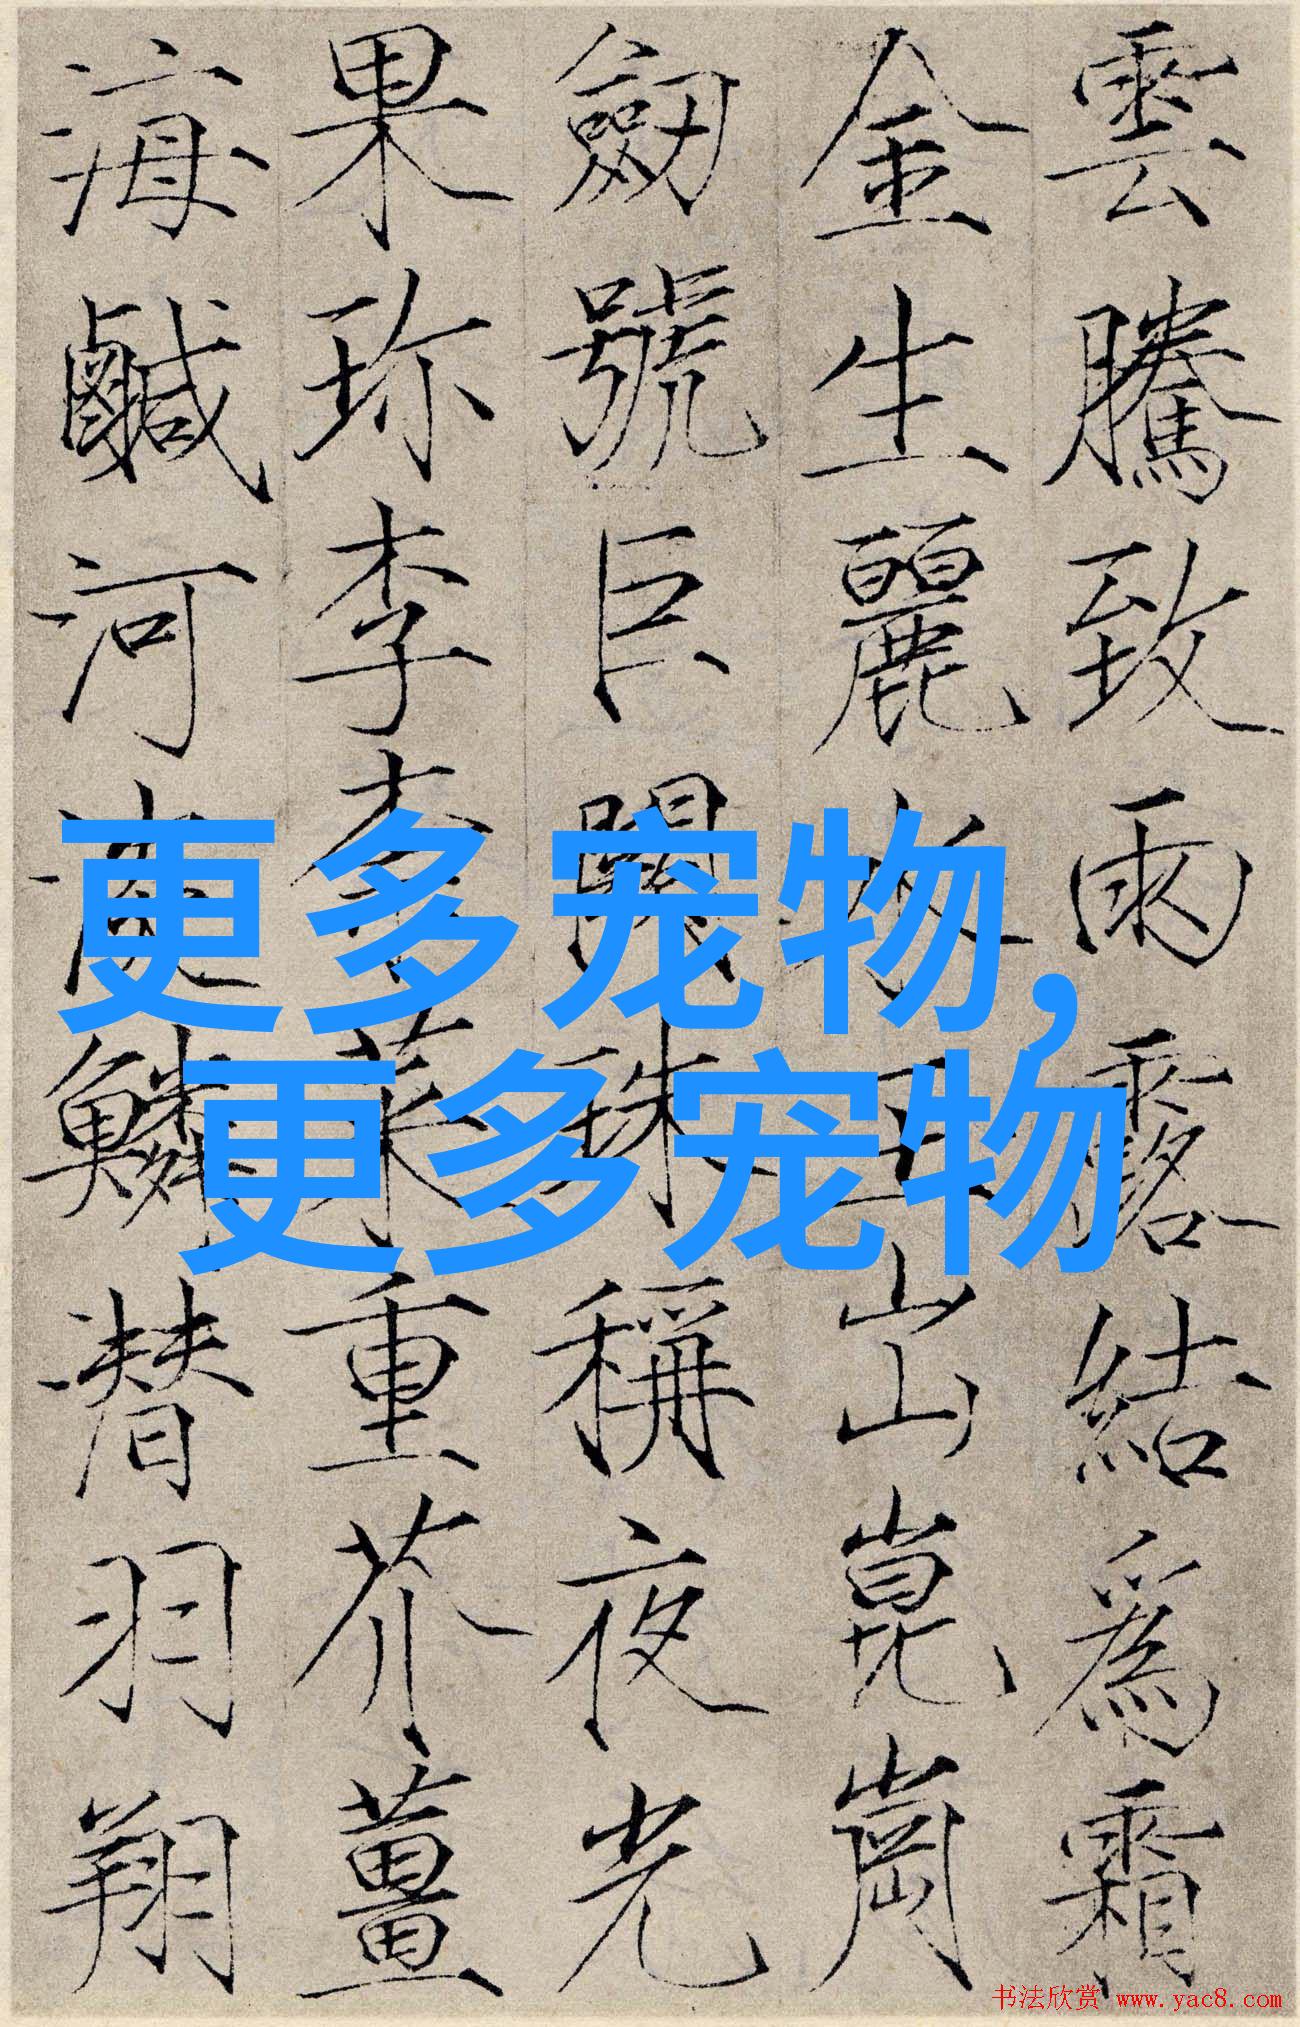 雲騰致雨露結為霜
金生麗水玉出崑崗
劒號巨闕珠稱夜光
果珎李柰菜重芥薑
海鹹河淡鱗潜羽翔
更多宠物，
更多宠物
书法欣赏 www.yac8.com